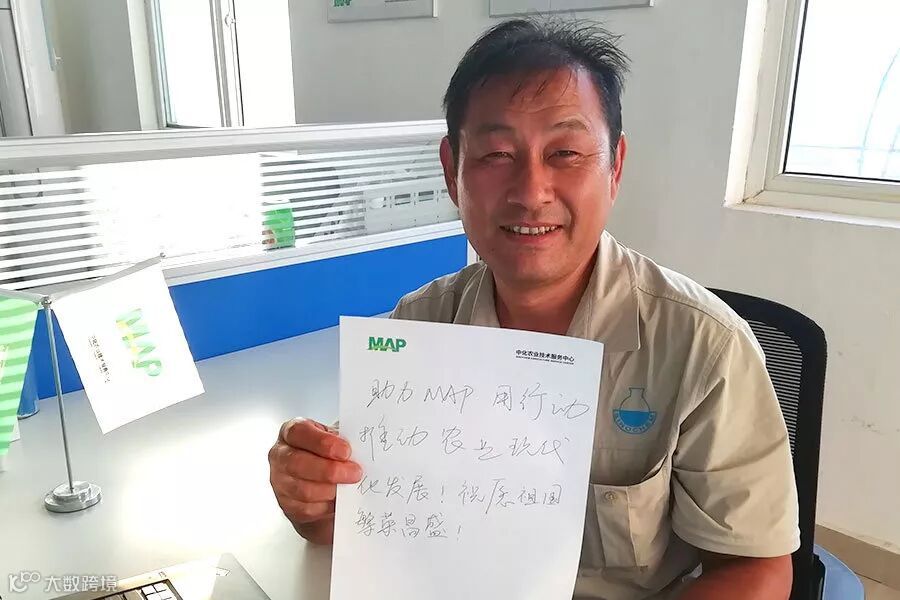 MAP
中化农业技术服务中心
助力MAP 用行动
推动农业现代
化发展！祝愿祖国
繁荣昌盛！
MAP
SINOCHEM
大数跨境